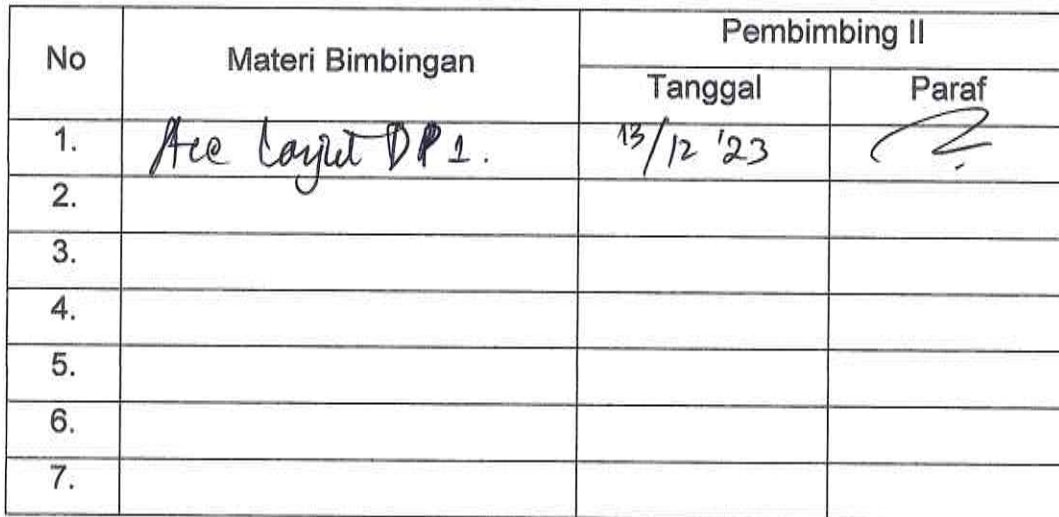 No Materi Bimbingan Pembimbing II
Tanggal Paraf
1. Acc Lanjut DP 1. 13/12 '23
2.
3.
4.
5.
6.
7.